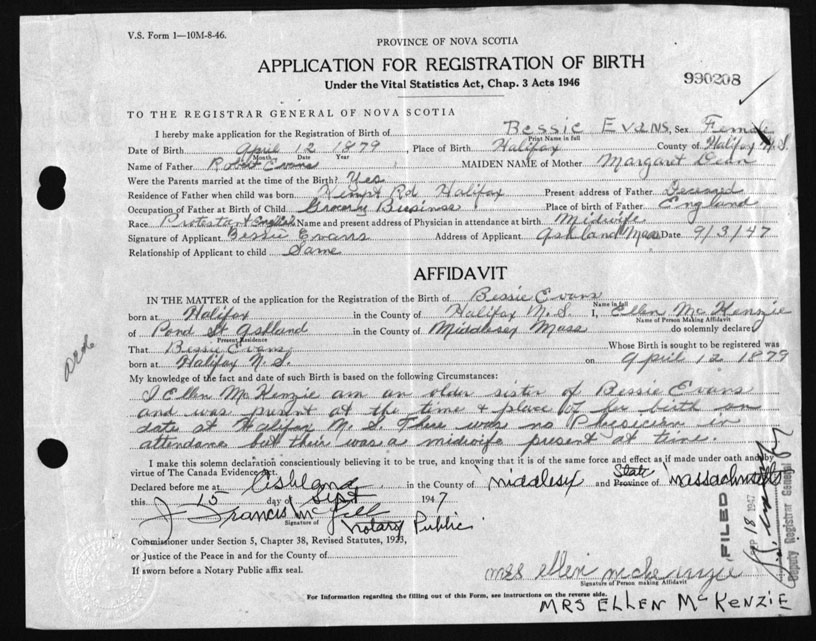 V.S. Form 1—10M-8-46.
PROVINCE OF NOVA SCOTIA
APPLICATION FOR REGISTRATION OF BIRTH
Under the Vital Statistics Act, Chap. 3 Acts 1946
990208
TO THE REGISTRAR GENERAL OF NOVA SCOTIA
I hereby make application for the Registration of Birth of Bessie Evans, Sex Female
Print Name in full
Date of Birth April 12 1879, Place of Birth Halifax County of Halifax N.S.
Month Date Year
Name of Father Robt Evans MAIDEN NAME of Mother Margaret Dean
Were the Parents married at the time of Birth? Yes
Residence of Father when child was born Kempt Rd Halifax Present address of Father Deceased
Occupation of Father at Birth of Child Grocery Business Place of birth of Father England
Race Protestant English Name and present address of Physician in attendance at birth Midwife
Signature of Applicant Bessie Evans Address of Applicant Ashland Mass Date 9/3/47
Relationship of Applicant to child Same
AFFIDAVIT
IN THE MATTER of the application for the Registration of the Birth of Bessie Evans
Name in full
born at Halifax in the County of Halifax N.S. I, Ellen McKenzie
Name of Person Making Affidavit
of Pond St Ashland in the County of Middlesex Mass do solemnly declare
Present Residence
That Bessie Evans Whose Birth is sought to be registered was
born at Halifax N.S. on April 12 1879
My knowledge of the fact and date of such Birth is based on the following Circumstances:
I Ellen McKenzie am an older sister of Bessie Evans
and was present at the time & place of her birth on
date at Halifax N.S. There was no Physician in
attendance but their was a midwife present at time.
I make this solemn declaration conscientiously believing it to be true, and knowing that it is of the same force and effect as if made under oath and by
virtue of The Canada Evidence Act.
Declared before me at Ashland in the County of Middlesex and State Province of Massachusetts
this 15 day of Sept 1947
J Francis McGill
Signature of Notary Public
Commissioner under Section 5, Chapter 38, Revised Statutes, 1923,
or Justice of the Peace in and for the County of
If sworn before a Notary Public affix seal.
Mrs Ellen McKenzie
Signature of Person making Affidavit
For Information regarding the filling out of this Form, see instructions on the reverse side.
MRS ELLEN McKENZIE
FILED
SEP 18 1947
Deputy Registrar General